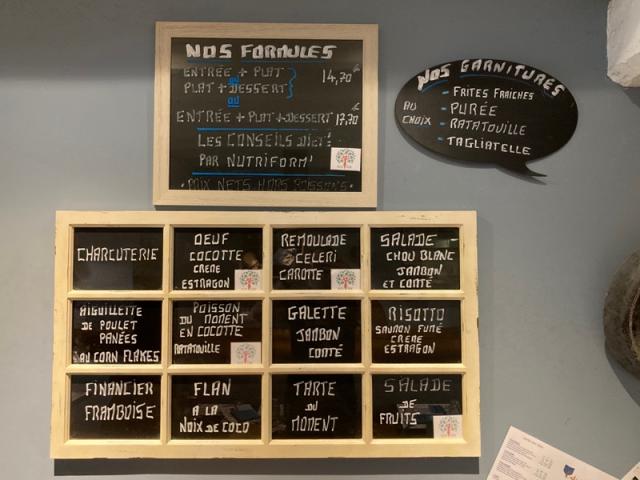 NOS FORMULES
ENTRÉE + PLAT
ou
PLAT + DESSERT
14,70€
ou
ENTRÉE + PLAT + DESSERT 17,70€
LES CONSEILS DIET'
PAR NUTRIFORM'
PRIX NETS HORS BOISSONS
NOS GARNITURES
AU CHOIX
- FRITES FRAÎCHES
- PURÉE
- RATATOUILLE
- TAGLIATELLE
CHARCUTERIE
OEUF
COCOTTE
CREME
ESTRAGON
REMOULADE
CELERI
CAROTTE
SALADE
CHOU BLANC
JAMBON
ET COMTÉ
AIGUILLETTE
DE POULET
PANÉES
AU CORN FLAKES
POISSON
DU MOMENT
EN COCOTTE
RATATOUILLE
GALETTE
JAMBON
COMTÉ
RISOTTO
SAUMON FUMÉ
CREME
ESTRAGON
FINANCIER
FRAMBOISE
FLAN
A LA
NOIX DE COCO
TARTE
DU
MOMENT
SALADE
DE
FRUITS